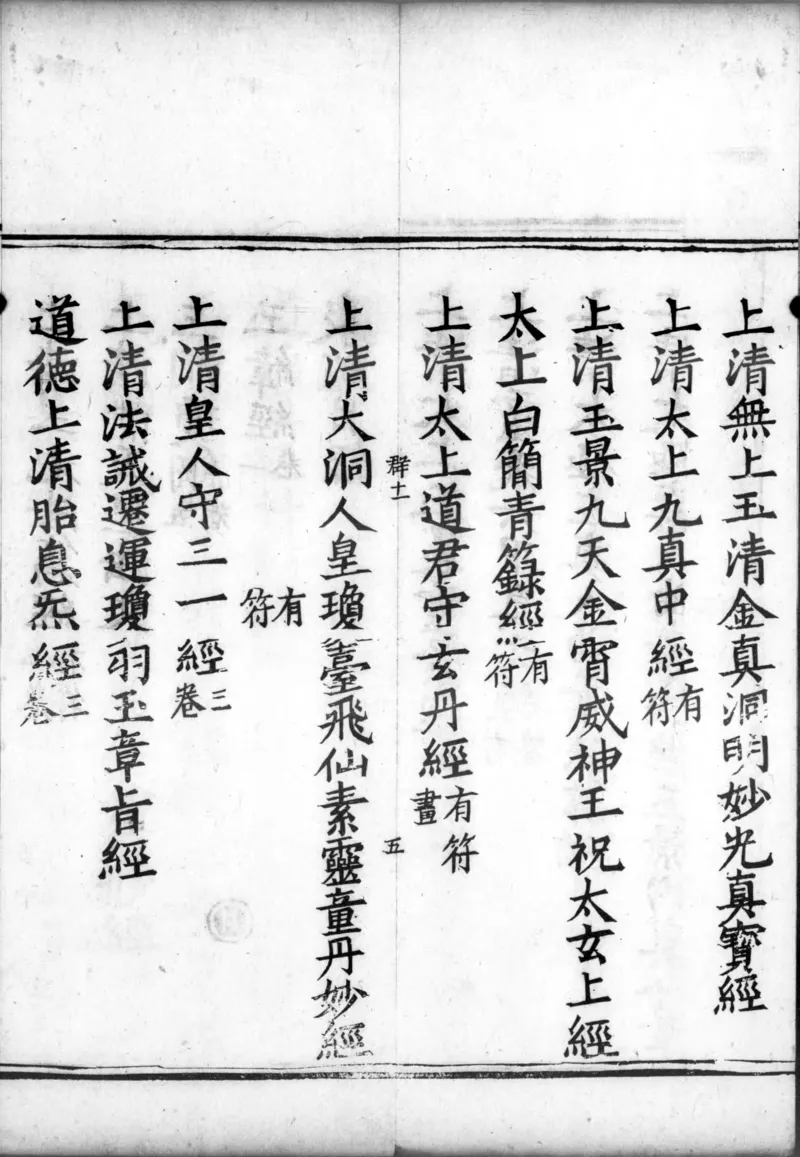 上清無上玉清金真洞明妙光真寶經
上清太上九真中經有符
上清玉景九天金霄威神王祝太玄上經
太上白簡青籙經有符
上清太上道君守玄丹經有符畫
群十一 五
上清大洞人皇瓊臺飛仙素靈童丹妙經
有符
上清皇人守三一經三卷
上清法誡遷運瓊羽玉章旨經
道德上清胎息炁經三卷